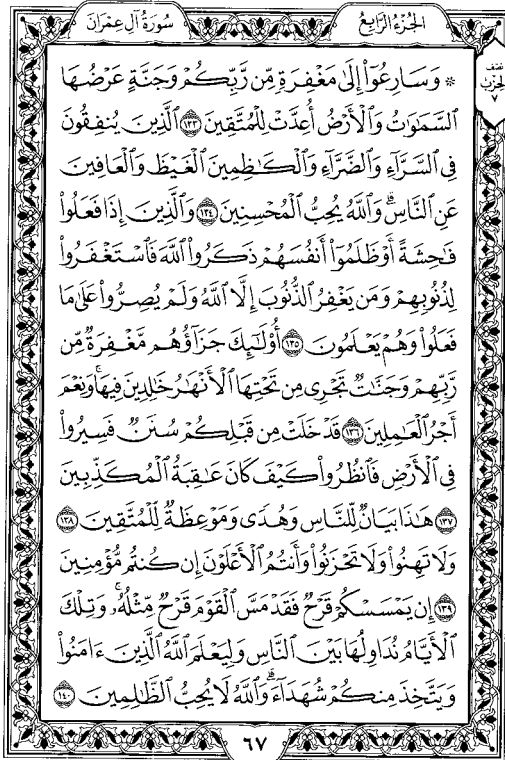 الجُزْءُ الرَّابِعُ
سُورَةُ آلِ عِمْرَانَ
نصف
الحزب
٧
۞ وَسَارِعُوٓا۟ إِلَىٰ مَغْفِرَةٍ مِّن رَّبِّكُمْ وَجَنَّةٍ عَرْضُهَا
ٱلسَّمَٰوَٰتُ وَٱلْأَرْضُ أُعِدَّتْ لِلْمُتَّقِينَ ١٣٣ ٱلَّذِينَ يُنفِقُونَ
فِى ٱلسَّرَّآءِ وَٱلضَّرَّآءِ وَٱلْكَٰظِمِينَ ٱلْغَيْظَ وَٱلْعَافِينَ
عَنِ ٱلنَّاسِ ۗ وَٱللَّهُ يُحِبُّ ٱلْمُحْسِنِينَ ١٣٤ وَٱلَّذِينَ إِذَا فَعَلُوا۟
فَٰحِشَةً أَوْ ظَلَمُوٓا۟ أَنفُسَهُمْ ذَكَرُوا۟ ٱللَّهَ فَٱسْتَغْفَرُوا۟
لِذُنُوبِهِمْ وَمَن يَغْفِرُ ٱلذُّنُوبَ إِلَّا ٱللَّهُ وَلَمْ يُصِرُّوا۟ عَلَىٰ مَا
فَعَلُوا۟ وَهُمْ يَعْلَمُونَ ١٣٥ أُو۟لَٰٓئِكَ جَزَآؤُهُم مَّغْفِرَةٌ مِّن
رَّبِّهِمْ وَجَنَّٰتٌ تَجْرِى مِن تَحْتِهَا ٱلْأَنْهَٰرُ خَٰلِدِينَ فِيهَا ۚ وَنِعْمَ
أَجْرُ ٱلْعَٰمِلِينَ ١٣٦ قَدْ خَلَتْ مِن قَبْلِكُمْ سُنَنٌ فَسِيرُوا۟
فِى ٱلْأَرْضِ فَٱنظُرُوا۟ كَيْفَ كَانَ عَٰقِبَةُ ٱلْمُكَذِّبِينَ
١٣٧ هَٰذَا بَيَانٌ لِّلنَّاسِ وَهُدًى وَمَوْعِظَةٌ لِّلْمُتَّقِينَ ١٣٨
وَلَا تَهِنُوا۟ وَلَا تَحْزَنُوا۟ وَأَنتُمُ ٱلْأَعْلَوْنَ إِن كُنتُم مُّؤْمِنِينَ
١٣٩ إِن يَمْسَسْكُمْ قَرْحٌ فَقَدْ مَسَّ ٱلْقَوْمَ قَرْحٌ مِّثْلُهُۥ ۚ وَتِلْكَ
ٱلْأَيَّامُ نُدَاوِلُهَا بَيْنَ ٱلنَّاسِ وَلِيَعْلَمَ ٱللَّهُ ٱلَّذِينَ ءَامَنُوا۟
وَيَتَّخِذَ مِنكُمْ شُهَدَآءَ ۗ وَٱللَّهُ لَا يُحِبُّ ٱلظَّٰلِمِينَ ١٤٠
٦٧